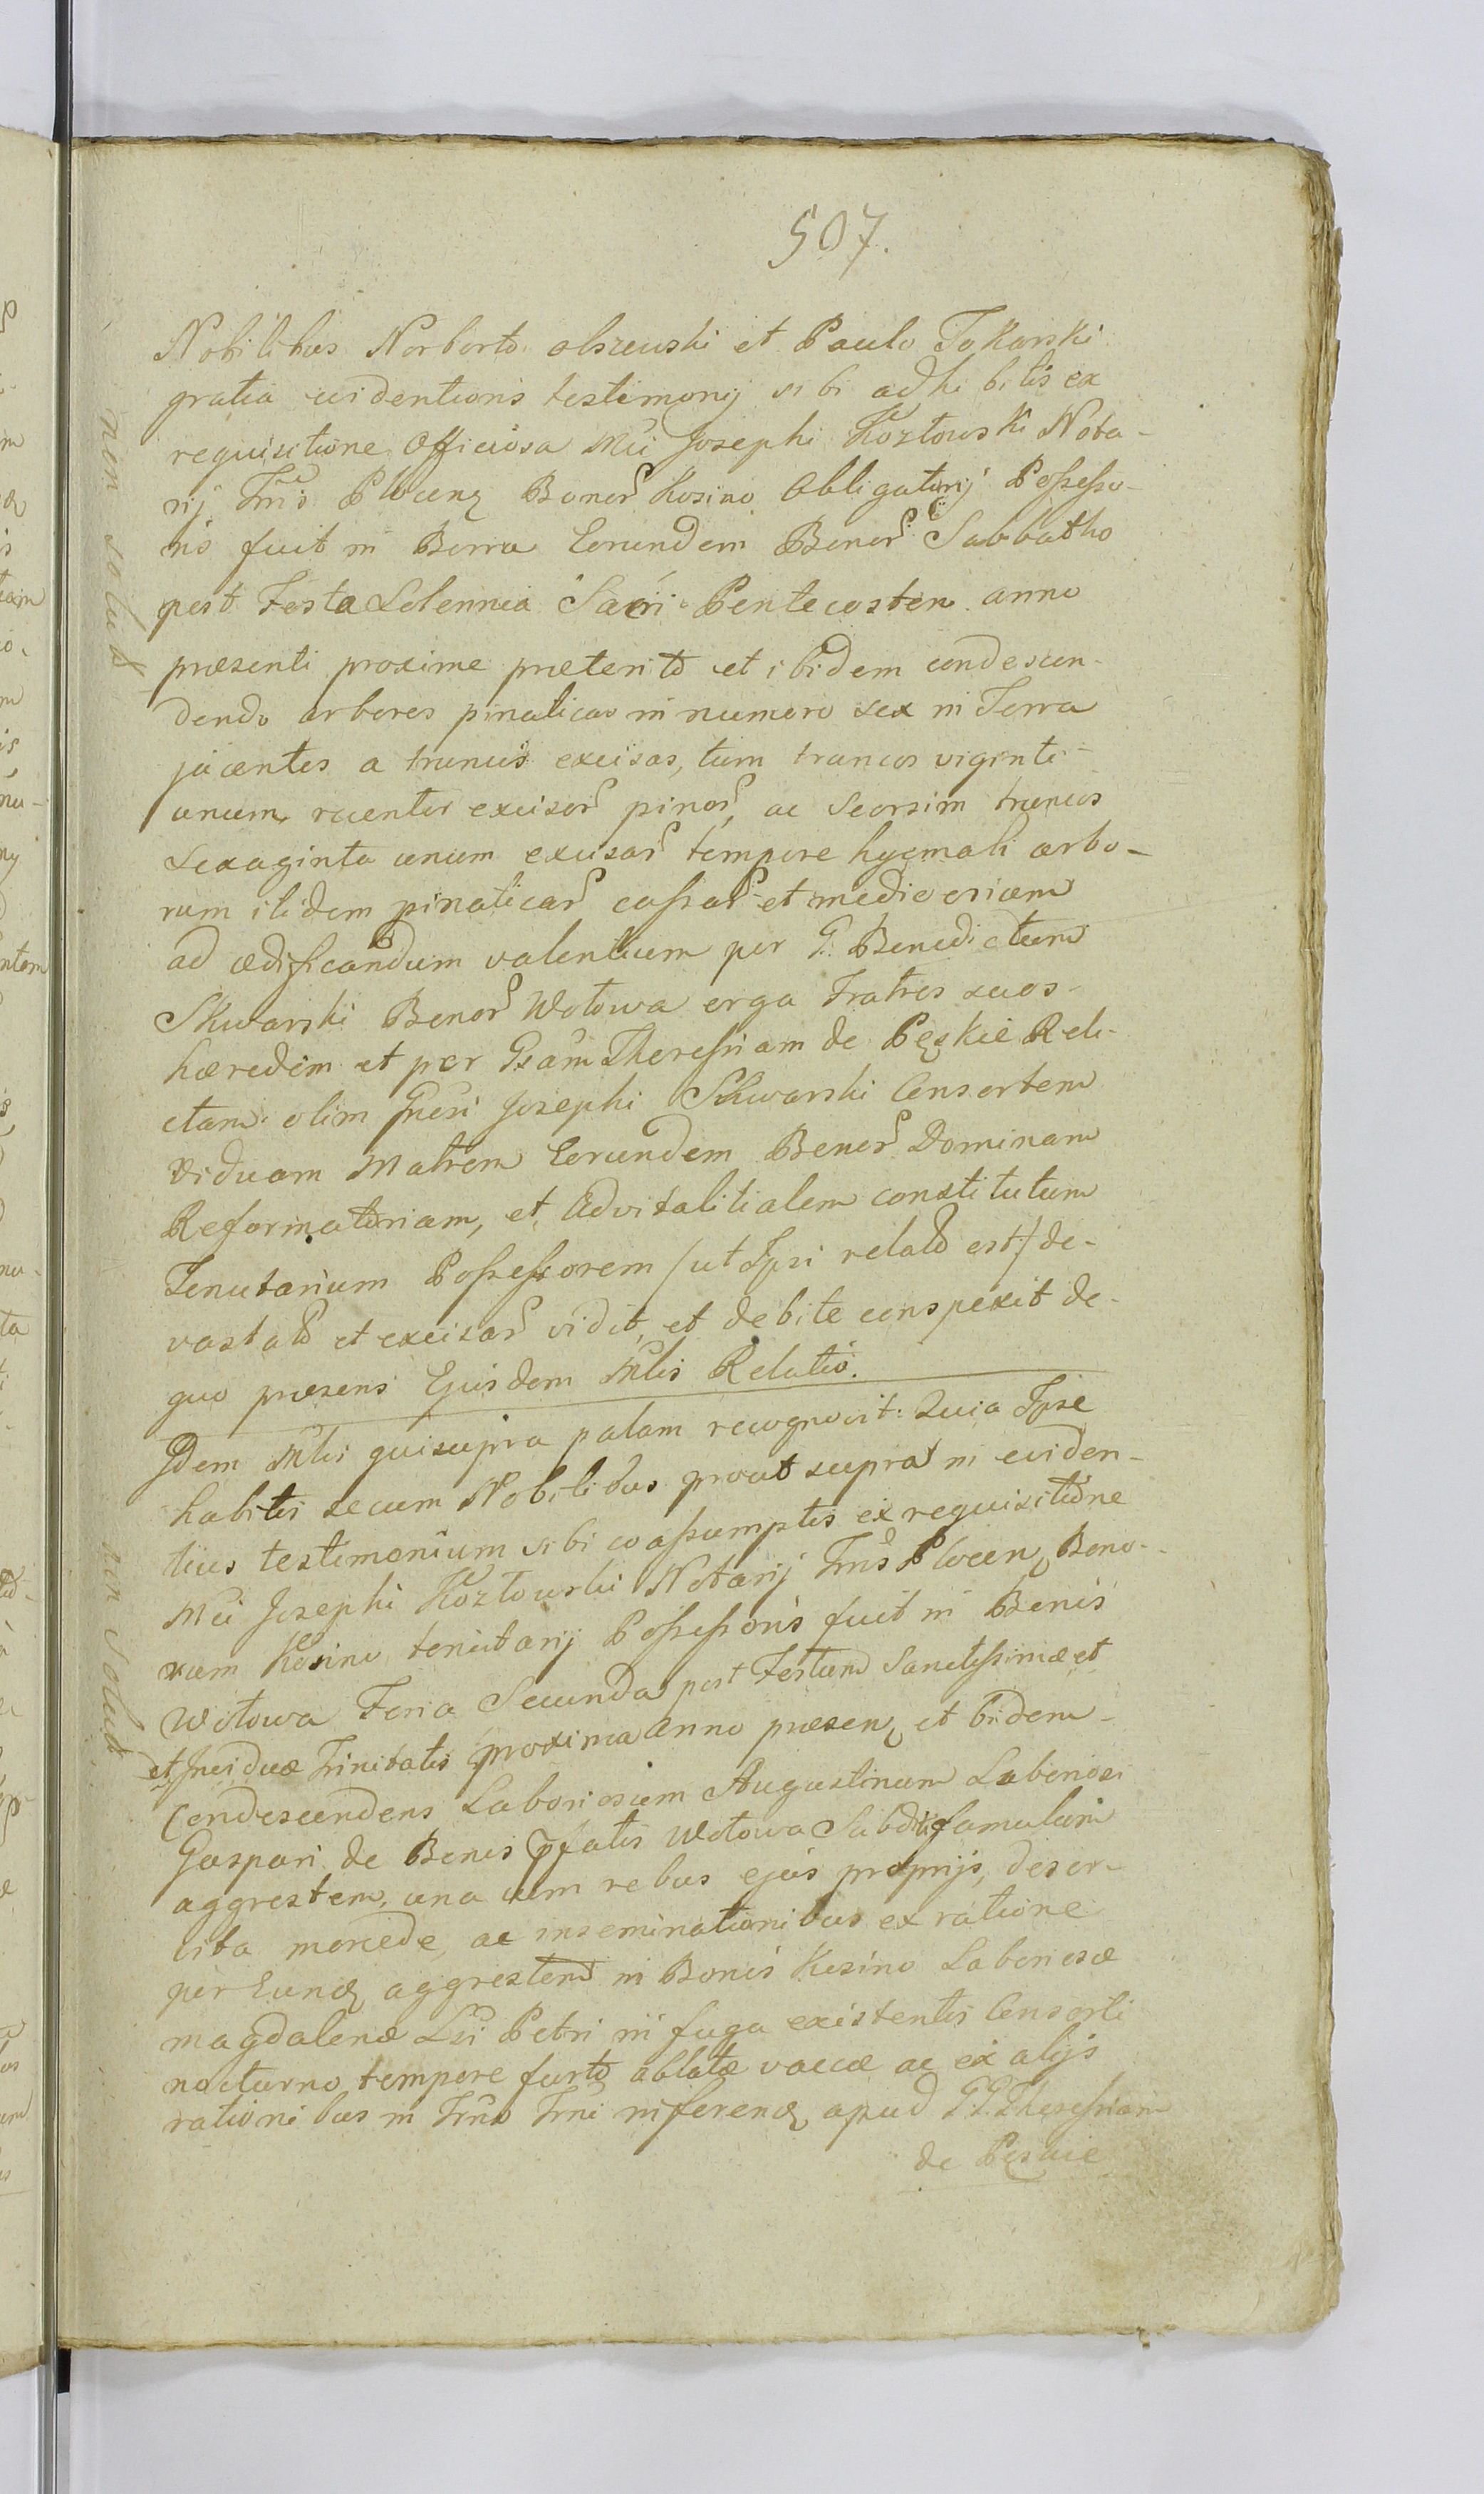 507.
Nobilibus Norberto Olszewski et Paulo Tokarski
gratia evidentioris testimonij sibi adhibitis ex
requisitione Officiosa Mci Josephi Kozłowski Nota-
rij Trris Plocen Bonor Kosino Obligatorij Possesso-
ris fuit in Borra Eorundem Bonor Sabbatho
post Festa Solennia Sacri Pentecosten anno
præsenti proxime præterito et ibidem condescen-
dendo arbores pinaticas in numero sex in Terra
jacentes a truncis excisas, tum truncos viginti
unum recenter excisor pinor, ac Seorsim truncos
Sexaginta unum excisar tempore hyemali arbo-
rum itidem pinaticar et mediocrium
ad ædificandum valentium per G. Benedictum
Skwarski Bonor Wotowa erga Fratres suos
hæredem et per Gsam Theressiam de Pęskie Reli-
ctam olim Gnesi Josephi Skwarski Consortem
Viduam Matrem Eorundem Bonor Dominam
Reformatoriam, et Advitalitialem constitutum
Tenutarium Possessorem /ut Ipsi relatũ est/ de-
vastatũ et excisar vidit, et debite conspexit de
quo præsens Ejusdem Mlis Relatio.
Idem Mlis qui supra palam recognovit: Quia Ipse
habitis secum Nobilibus prout supra in eviden-
tius testimonium sibi coassumptis ex requisitione
Mci Josephi Kozłowski Notarij Trris Plocen Bono-
rum Kosino tenutarij Possessoris fuit in Bonis
Wotowa Feria Secunda post Festum Sanctissimæ et
et Individuæ Trinitatis proxima Anno præsen et ibidem
Condescendens Laboriosum Augustinum Laboriosi
Gaspari de Bonis pfatis Wotowa Subditi famulum
aggrestem, una cum rebus ejus proprijs, deser-
vita mercede, ac inseminationibus ex ratione
per Eund aggrestem in Bonis Kosino Laboriosæ
Magdalenæ Lsi Petri in fuga existentis Consorti
nocturno tempore furto ablatæ vaccæ ac ex alijs
rationibus in Trno Trni inferend apud G.G. Theressiam
de Pęskie
non solut
non Solut